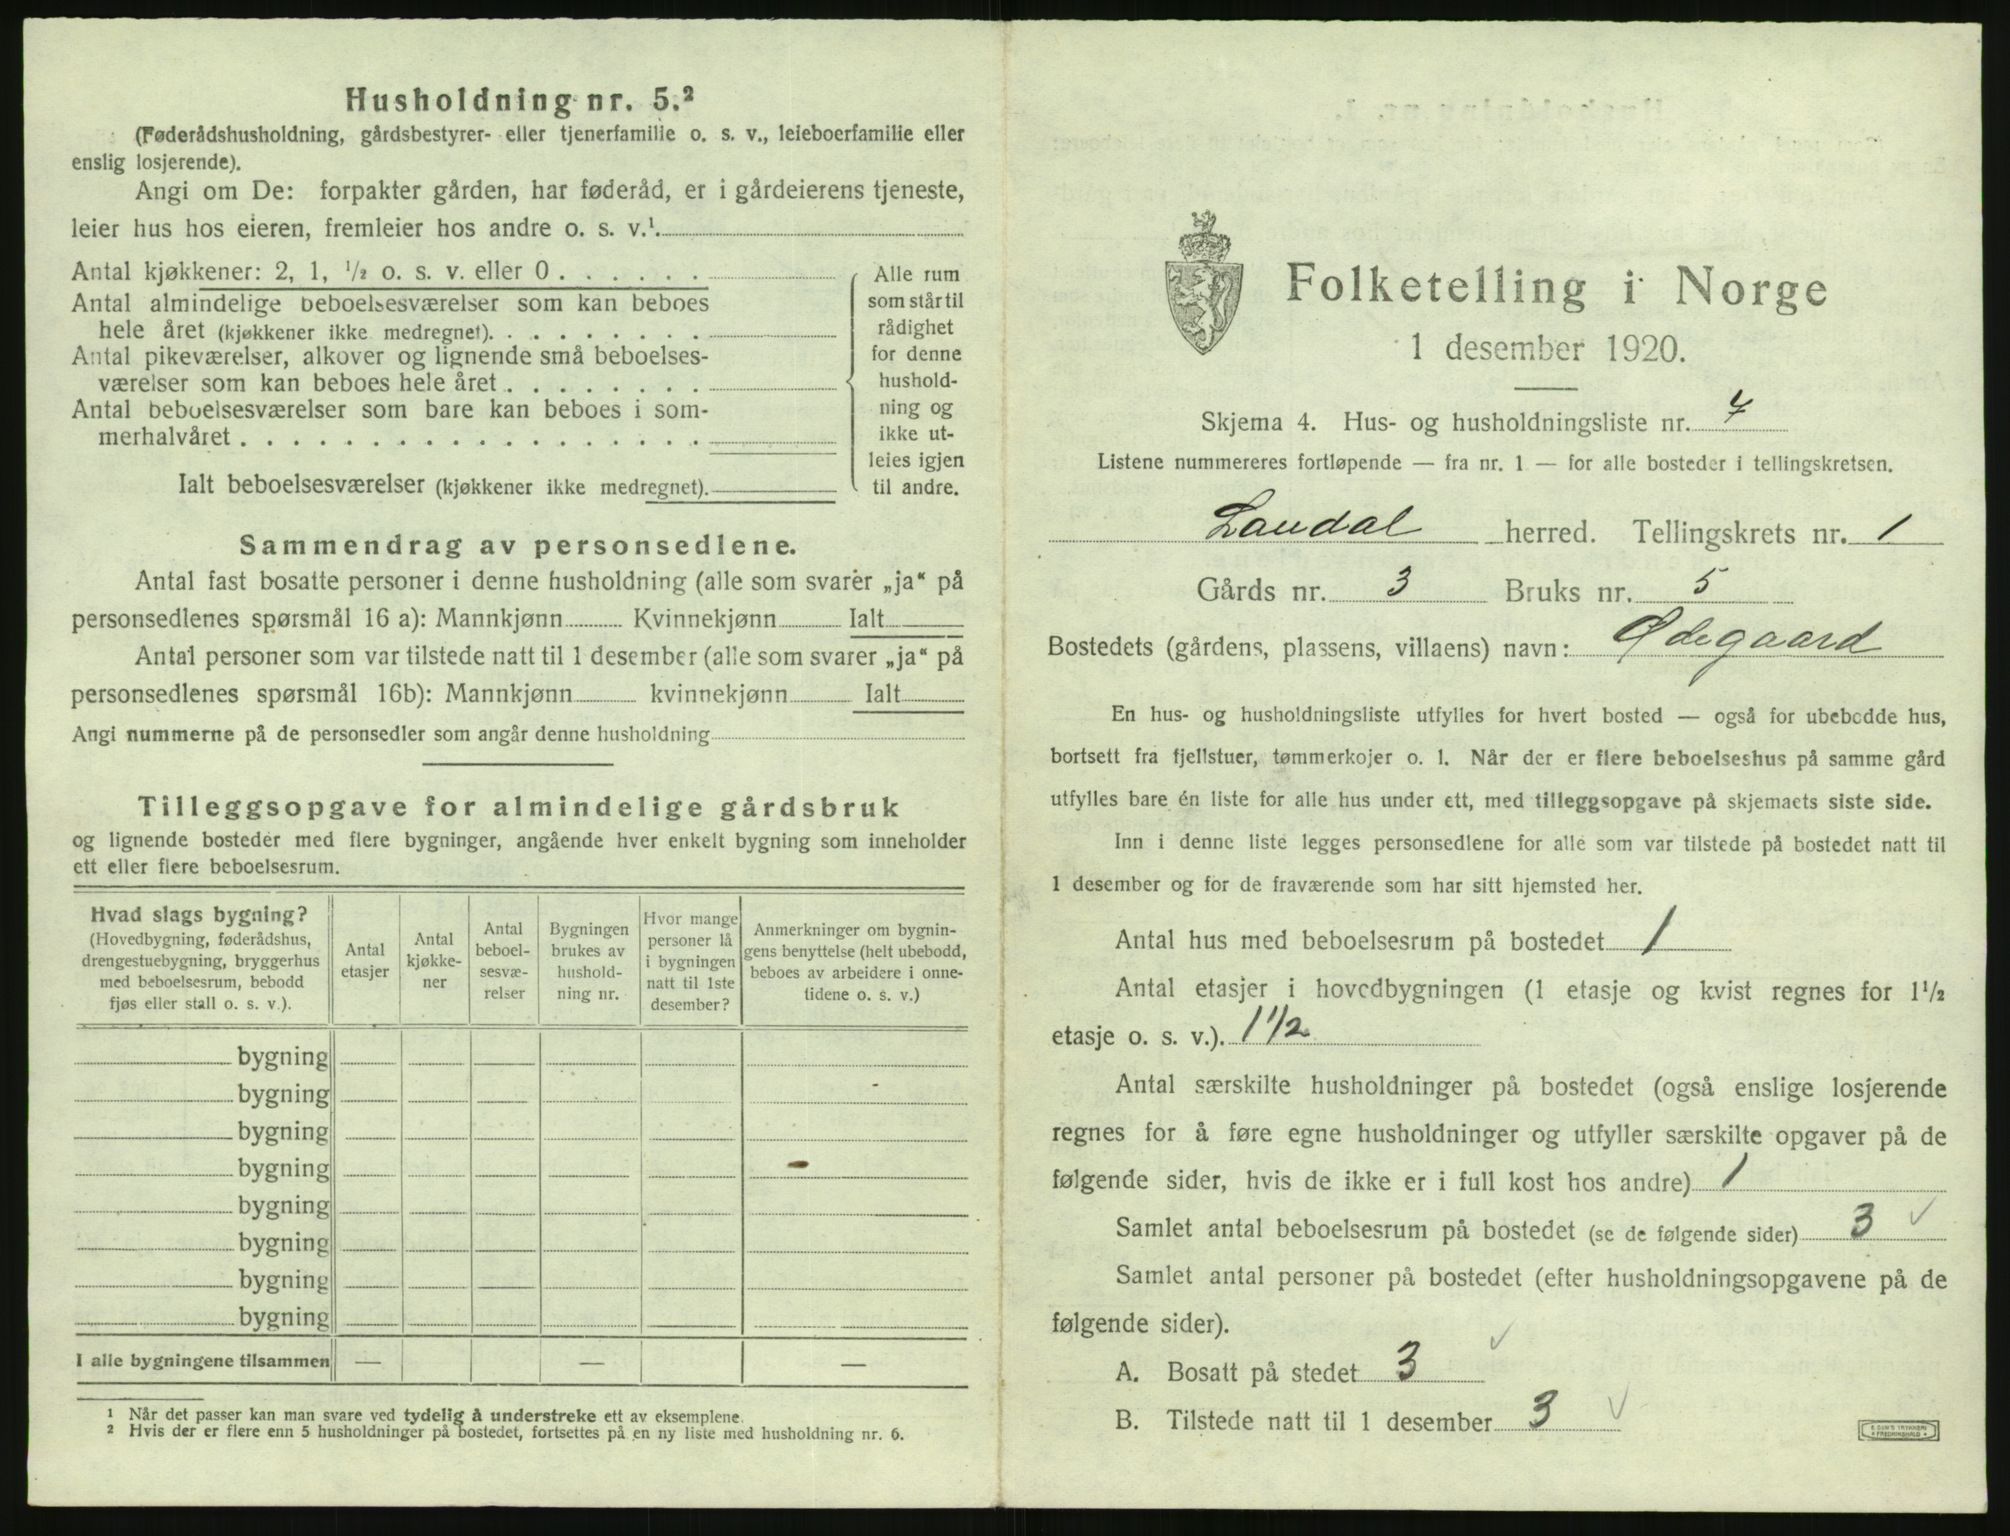 Husholdning nr. 5.²
(Føderådshusholdning, gårdsbestyrer- eller tjenerfamilie o. s. v., leieboerfamilie eller
enslig losjerende).
Angi om De: forpakter gården, har føderåd, er i gårdeierens tjeneste,
leier hus hos eieren, fremleier hos andre o. s. v.¹.
Antal kjøkkener: 2, 1, ½ o. s. v. eller 0 . . . . . .
Antal almindelige beboelsesværelser som kan beboes
hele året (kjøkkener ikke medregnet). . . . . . . . .
Antal pikeværelser, alkover og lignende små beboelses-
værelser som kan beboes hele året . . . . . . . .
Antal beboelsesværelser som bare kan beboes i som-
merhalvåret . . . . . . . . . . . . . . . . . .
Ialt beboelsesværelser (kjøkkener ikke medregnet).
Alle rum
som står til
rådighet
for denne
hushold-
ning og
ikke ut-
leies igjen
til andre.
Sammendrag av personsedlene.
Antal fast bosatte personer i denne husholdning (alle som svarer „ja“ på
personsedlenes spørsmål 16 a): Mannkjønn Kvinnekjønn Ialt
Antal personer som var tilstede natt til 1 desember (alle som svarer „ja“ på
personsedlenes spørsmål 16b): Mannkjønn kvinnekjønn Ialt
Angi nummerne på de personsedler som angår denne husholdning
Tilleggsopgave for almindelige gårdsbruk
og lignende bosteder med flere bygninger, angående hver enkelt bygning som inneholder
ett eller flere beboelsesrum.
Hvad slags bygning?
(Hovedbygning, føderådshus,
drengestuebygning, bryggerhus
med beboelsesrum, bebodd
fjøs eller stall o. s. v.).
Antal
etasjer
Antal
kjøkke-
ner
Antal
beboel-
sesvæ-
relser
Bygningen
brukes av
hushold-
ning nr.
Hvor mange
personer lå
i bygningen
natt til 1ste
desember?
Anmerkninger om bygnin-
gens benyttelse (helt ubebodd,
beboes av arbeidere i onne-
tidene o. s. v.)
bygning
bygning
bygning
bygning
bygning
bygning
bygning
bygning
I alle bygningene tilsammen — — —
¹ Når det passer kan man svare ved tydelig å understreke ett av eksemplene.
² Hvis der er flere enn 5 husholdninger på bostedet, fortsettes på en ny liste med husholdning nr. 6.
Folketelling i Norge
1 desember 1920.
Skjema 4. Hus- og husholdningsliste nr. 7
Listene nummereres fortløpende — fra nr. 1 — for alle bosteder i tellingskretsen.
Laudal herred. Tellingskrets nr. 1
Gårds nr. 3 Bruks nr. 5
Bostedets (gårdens, plassens, villaens) navn: Ødegaard
En hus- og husholdningsliste utfylles for hvert bosted — også for ubebodde hus,
bortsett fra fjellstuer, tømmerkojer o. l. Når der er flere beboelseshus på samme gård
utfylles bare én liste for alle hus under ett, med tilleggsopgave på skjemaets siste side.
Inn i denne liste legges personsedlene for alle som var tilstede på bostedet natt til
1 desember og for de fraværende som har sitt hjemsted her.
Antal hus med beboelsesrum på bostedet 1
Antal etasjer i hovedbygningen (1 etasje og kvist regnes for 1½
etasje o. s. v.). 1½
Antal særskilte husholdninger på bostedet (også enslige losjerende
regnes for å føre egne husholdninger og utfyller særskilte opgaver på de
følgende sider, hvis de ikke er i full kost hos andre) 1
Samlet antal beboelsesrum på bostedet (se de følgende sider) 3 ✓
Samlet antal personer på bostedet (efter husholdningsopgavene på de
følgende sider).
A. Bosatt på stedet 3 ✓
B. Tilstede natt til 1 desember 3 ✓